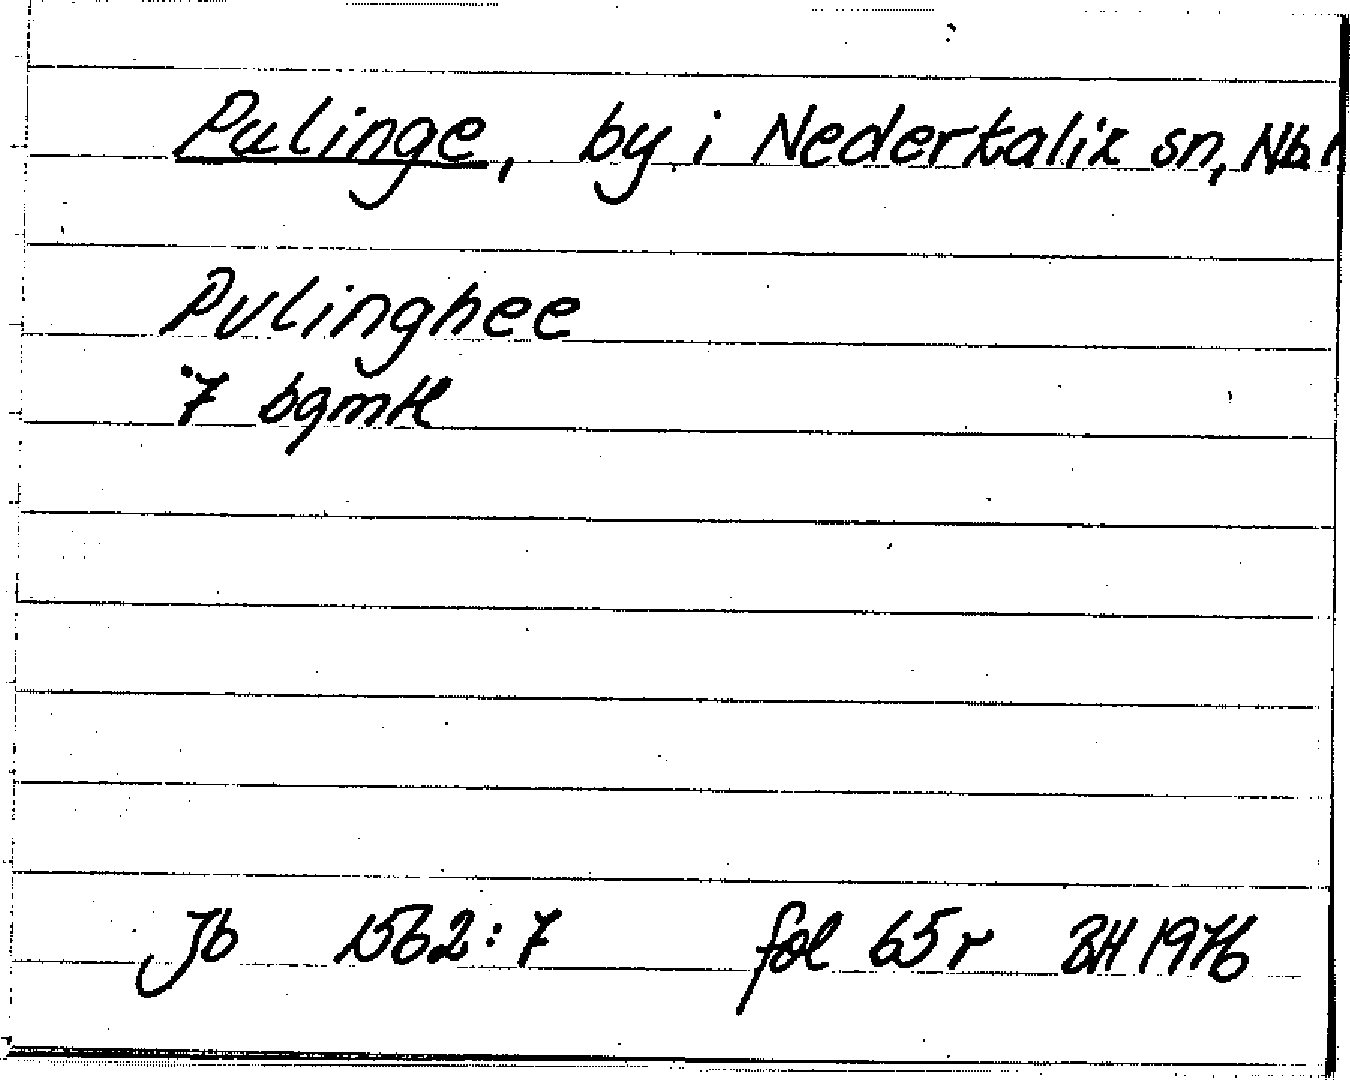 Pålinge, by i Nederkalix sn, Nb.
Pulinghee
7 bgmtl
Jb 1562:7 fol 65r BH 1976